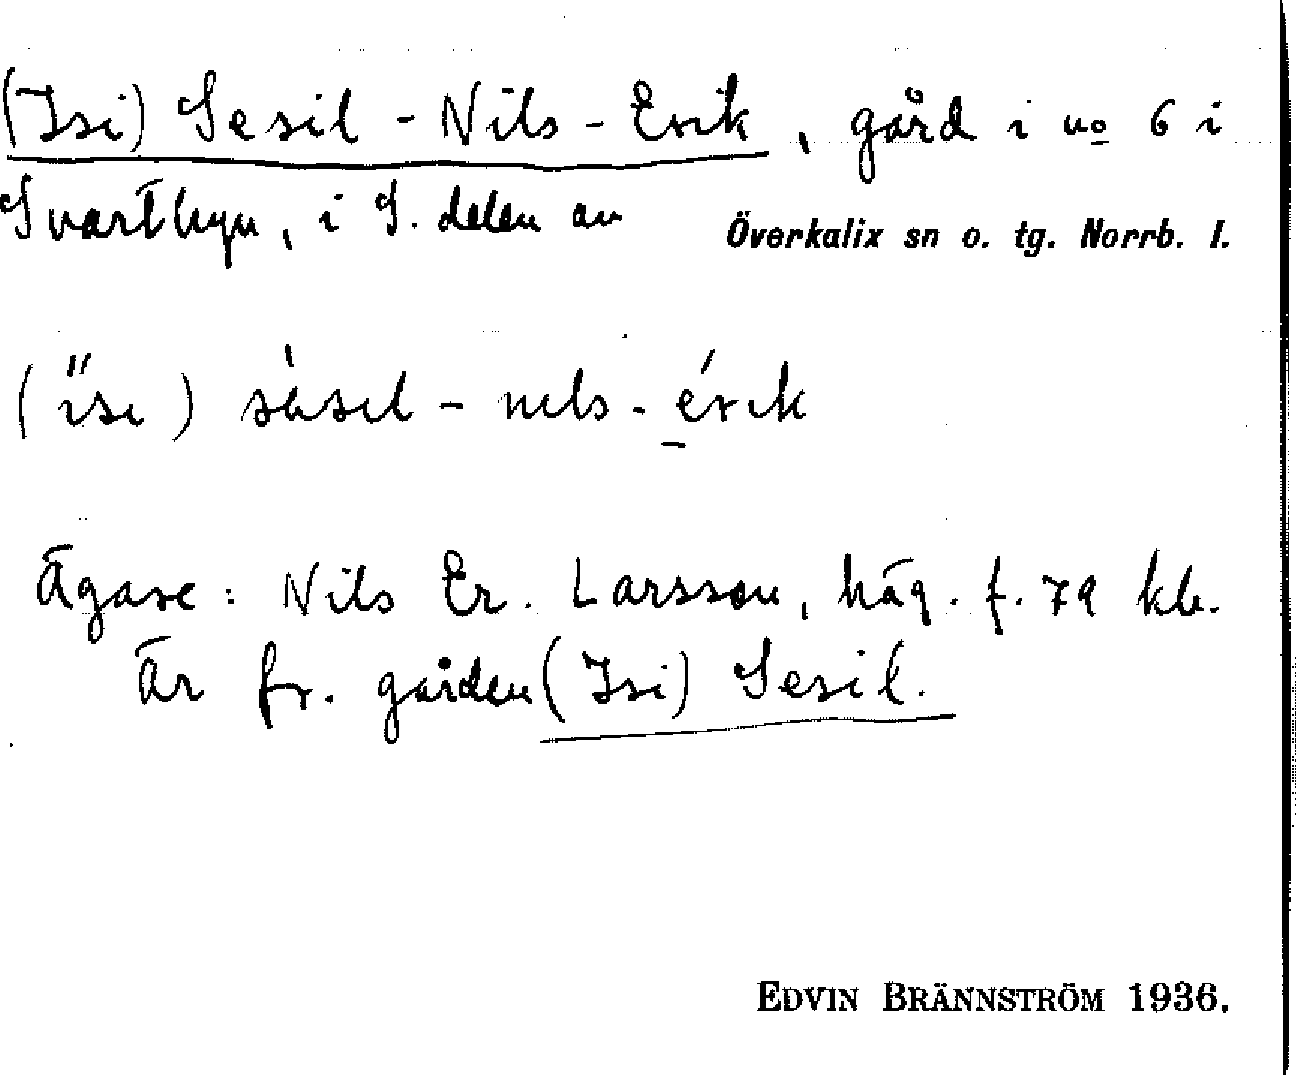 (Isi) Sesil - Nils - Erik, gård i no 6 i
Svartbyn, i S. delen av Överkalix sn o. tg. Norrb. l.
(ïsi) säsil - nils - érik
Ägare: Nils Er. Larsson, häg. f. 79 kb.
Är fr. gården (Isi) Sesil.
EDVIN BRÄNNSTRÖM 1936.